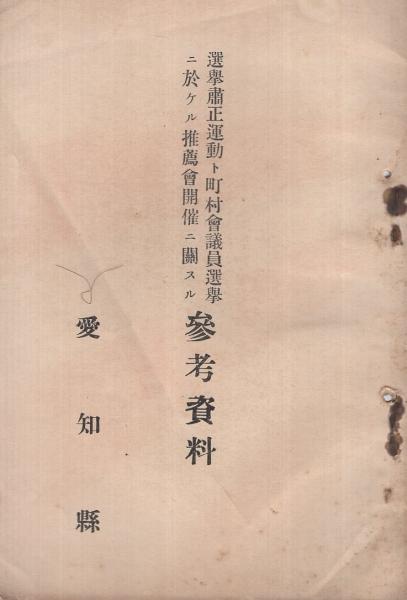 選擧肅正運動ト町村會議員選擧
ニ於ケル推薦會開催ニ關スル
參考資料
愛知縣